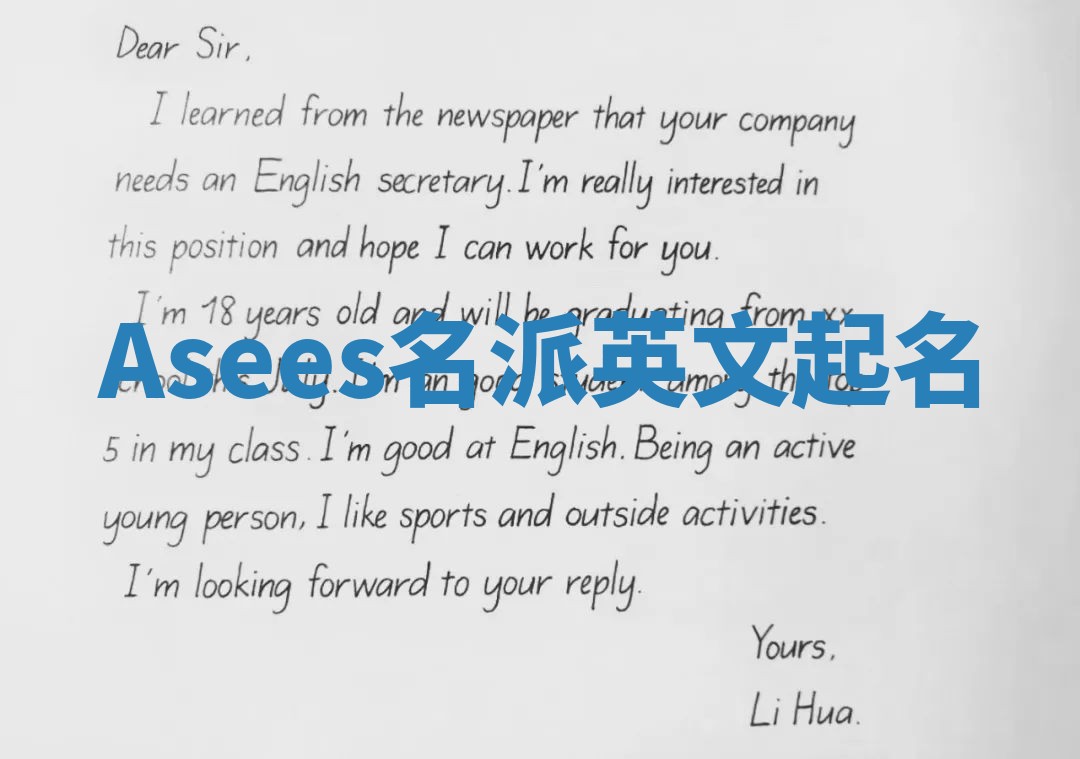 Dear Sir,
I learned from the newspaper that your company
needs an English secretary. I'm really interested in
this position and hope I can work for you.
I'm 18 years old and will be graduating from xx
Asees名派英文起名
school this July. I'm an good student among the top
5 in my class. I'm good at English. Being an active
young person, I like sports and outside activities.
I'm looking forward to your reply.
Yours,
Li Hua.